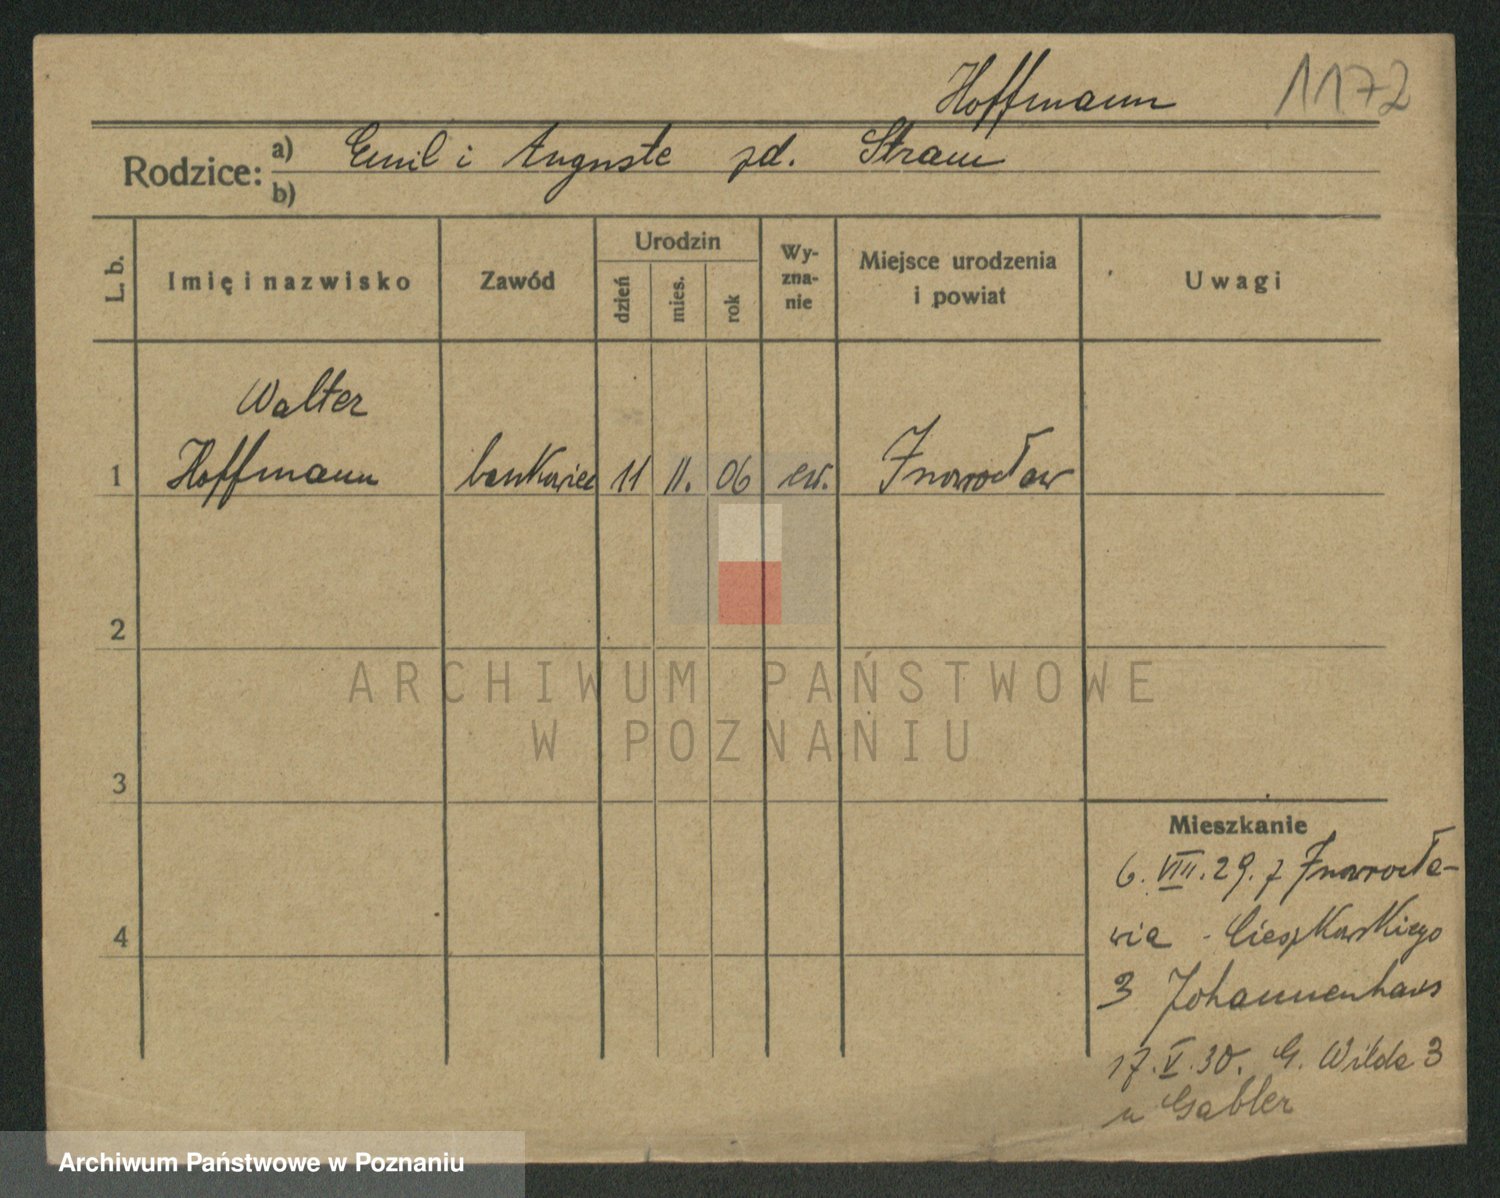 Hoffmann 1172
Rodzice: a) Emil i Auguste zd. Stram
b)
L. b. Imię i nazwisko Zawód Urodzin dzień mies. rok Wyzna-nie Miejsce urodzenia i powiat Uwagi
Walter
1 Hoffmann bankowiec 11 11. 06 ew. Inowrocław
2
3
4
Mieszkanie
6. VIII. 29. z Inowrocła-
wia - Cieszkowskiego
3 Johannenhaus
17. V. 30. G. Wilda 3
u Gabler
ARCHIWUM PAŃSTWOWE
W POZNANIU
Archiwum Państwowe w Poznaniu